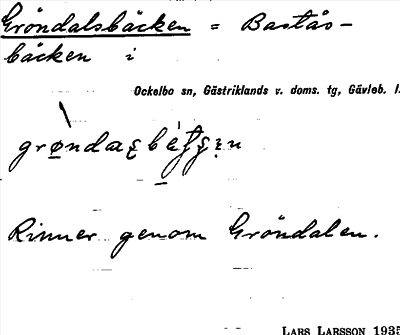 Gröndalsbäcken = Bastås-
bäcken i
Ockelbo sn, Gästriklands v. doms. tg, Gävleb. l.
Rinner genom Gröndalen.
LARS LARSSON 1935